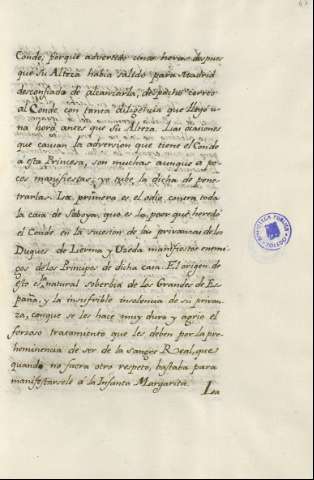 Conde, porque advertido cinco horas despues
que su Alteza habia salido para Madrid
desconfiada de alcanzarla, despachó correo
al Conde con tanta diligencia que llegó u-
na hora antes que su Alteza. Las ocasiones
que causan la adversion que tiene el Conde
á esta Princesa, son muchas aunque á po-
cos manifiestas; yo tube la dicha de pene-
trarlas. La primera es, el odio contra toda
la casa de Saboya, que es lo peor que heredó
el Conde en la sucesion de las privanzas de los
Duques de Lerma y Uzeda manifiestos enemi-
gos de los Principes de dicha casa. El origen de
esto es natural soberbia de los Grandes de Es-
paña, y la insufrible insolencia de su privan-
za, conque se les hace muy duro y agrio el
forzoso tratamiento que les deben por la pre-
heminencia de ser de la sangre Real, que
quando no fuera otro respeto, bastaba para
manifestarsele á la Infanta Margarita.
La
BIBLIOTECA PUBLICA
TOLEDO